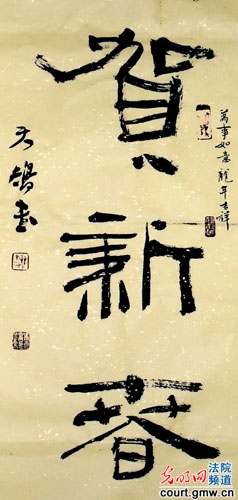 萬事如意龍年吉祥
賀新春
天鴿書
光明网 法院频道
court.gmw.cn